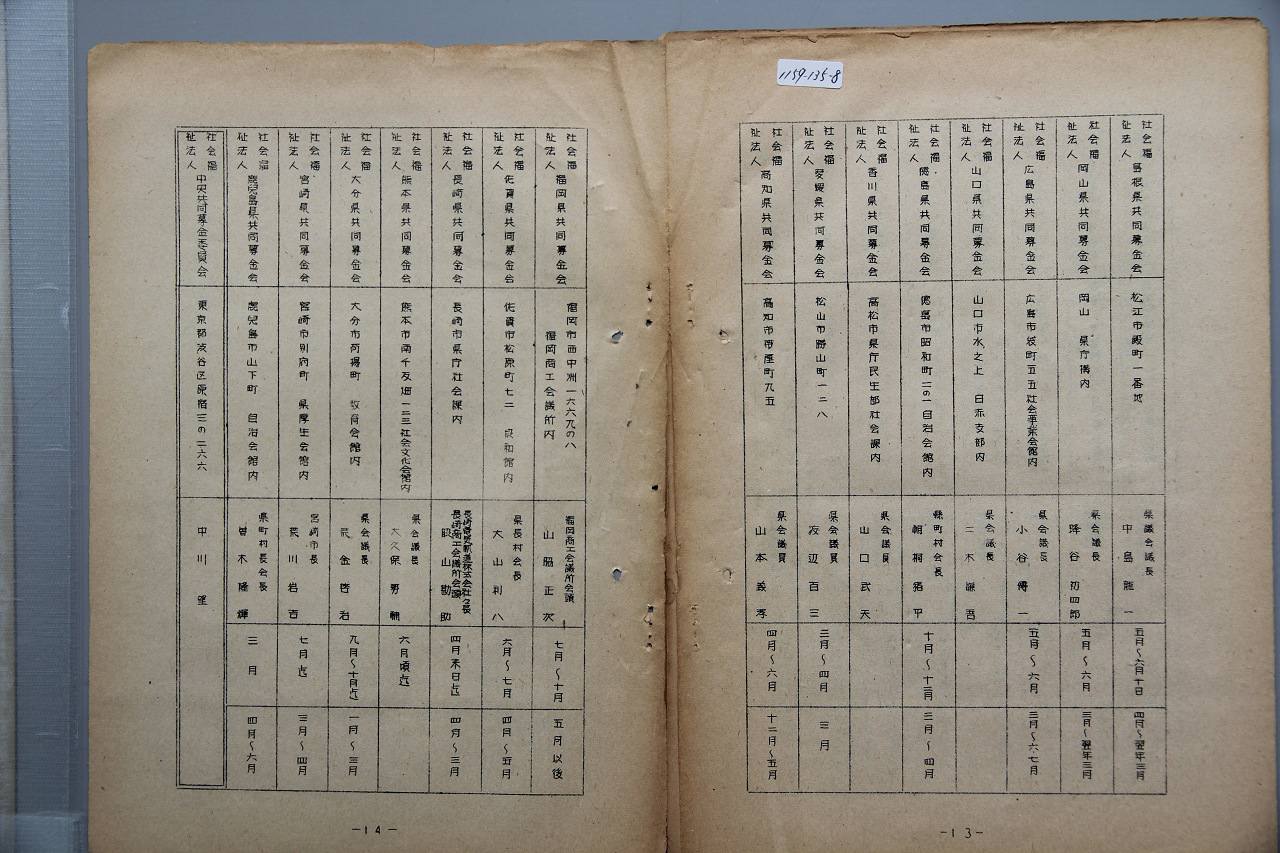 1159-135-8
社会福祉法人 島根県共同募金会
松江市殿町一番地
県議会議長
中島 一
五月〜六月十日
四月〜翌年三月
社会福祉法人 岡山県共同募金会
岡山 県庁構内
県会議長
蜂谷初四郎
五月〜六月
三月〜翌年三月
社会福祉法人 広島県共同募金会
広島市袋町五五社会事業会館内
県会議長
小谷傳一
五月〜六月
三月〜六、七月
社会福祉法人 山口県共同募金会
山口市水之上 日赤支部内
県会議長
二木謙吾
社会福祉法人 徳島県共同募金会
徳島市昭和町二の一自治会館内
県町村会長
朝桐猪平
十月〜十二月
三月〜四月
社会福祉法人 香川県共同募金会
高松市県庁民生部社会課内
県会議長
山口武夫
社会福祉法人 愛媛県共同募金会
松山市勝山町一二八
県会議員
渡辺百三
三月〜四月
三月
社会福祉法人 高知県共同募金会
高知市帯屋町九五
県会議員
山本義孝
四月〜六月
十二月〜五月
-13-
社会福祉法人 福岡県共同募金会
福岡市西中洲一六六九の八
福岡商工会議所内
福岡商工会議所会頭
山脇正次
七月〜十月
五月以後
社会福祉法人 佐賀県共同募金会
佐賀市松原町七二 内
県長村会長
大山利八
六月〜七月
四月〜五月
社会福祉法人 長崎県共同募金会
長崎市県庁社会課内
長崎商工会議所会頭
脇山勘助
四月末日迄
四月〜三月
社会福祉法人 熊本県共同募金会
熊本市南千反畑一二三社会文化会館内
県会議長
大久保勢輔
六月頃迄
社会福祉法人 大分県共同募金会
大分市荷揚町 教育会館内
県会議長
荒金啓治
九月〜十月迄
一月〜三月
社会福祉法人 宮崎県共同募金会
宮崎市別府町 県厚生会館内
宮崎市長
荒川岩吉
七月迄
三月〜四月
社会福祉法人 鹿児島県共同募金会
鹿児島市山下町 自治会館内
県町村長会長
曽木隆輝
三月
四月〜六月
社会福祉法人 中央共同募金委員会
東京都渋谷区原宿三の二六六
中川望
-14-